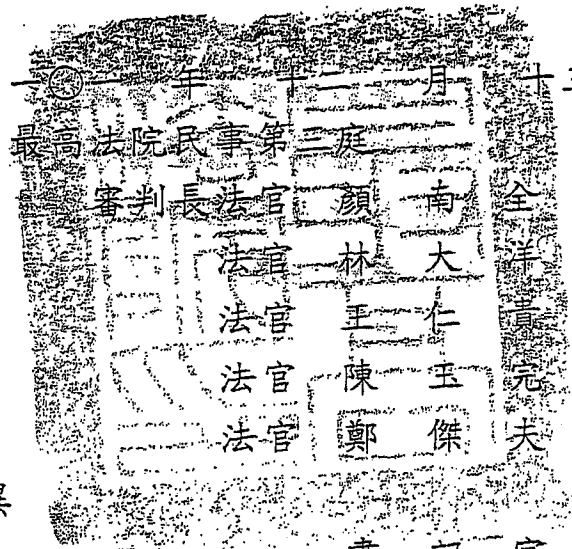 一〇一 年 十二 月 十三
最高法院民事第三庭
審判長法官 顏 南 全
法官 林 大 洋
法官 王 仁 貴
法官 陳 玉 完
法官 鄭 傑 夫